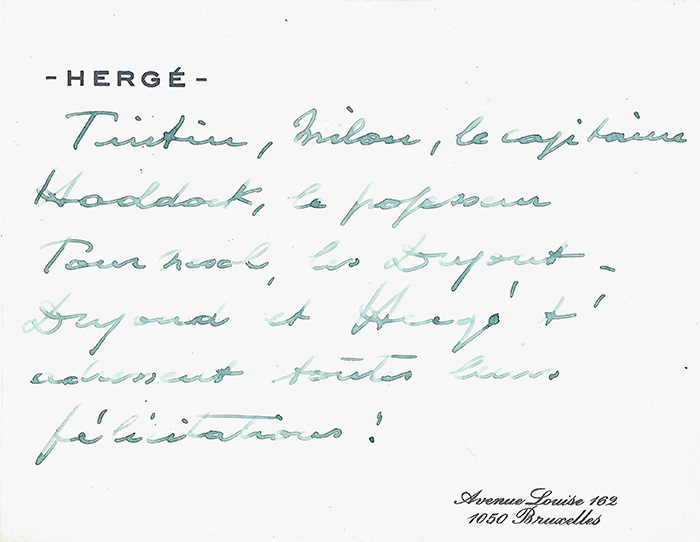 - HERGÉ -
Tintin, Milou, le capitaine
Haddock, le professeur
Tournesol, les Dupont-
Dupond et Hergé t'
adressent toutes leurs
félicitations !
Avenue Louise 162
1050 Bruxelles